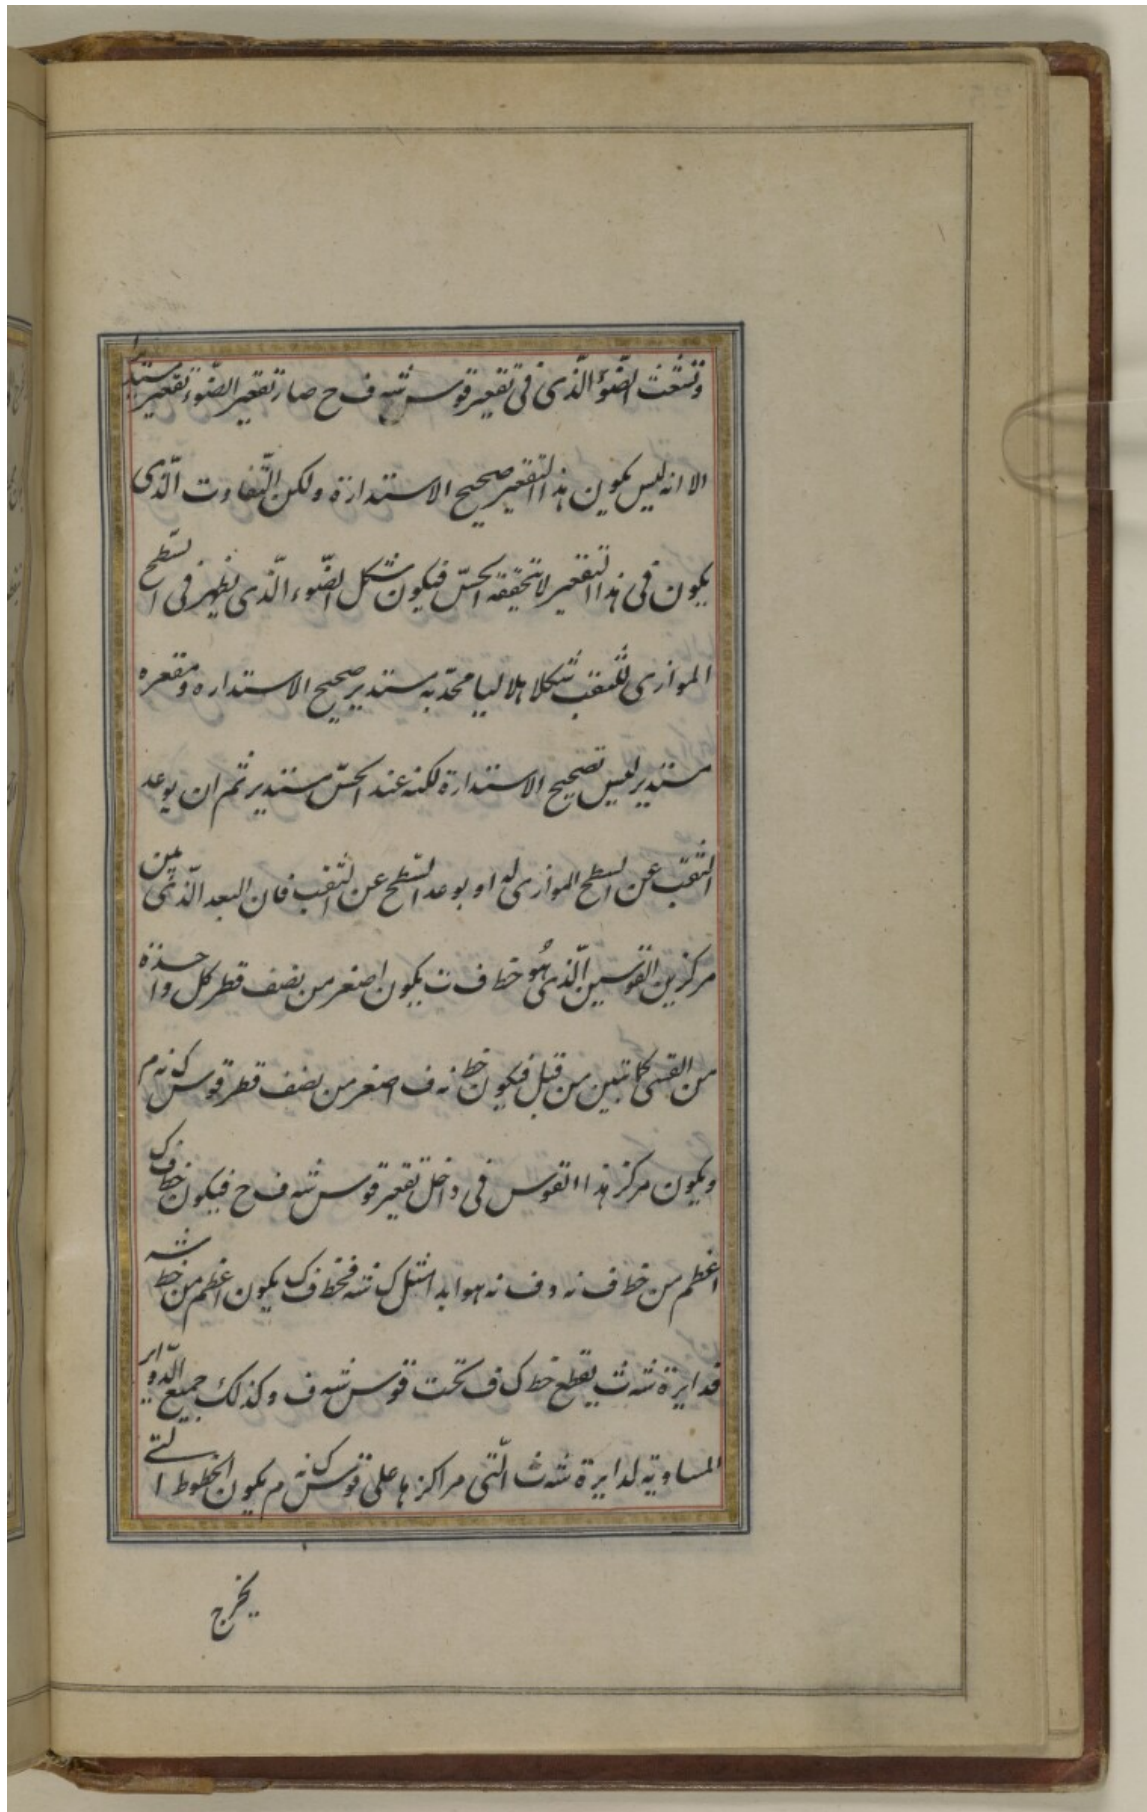 وتشعث الضّوء الّذى فى تقعير قوس شه ف ح صار تقعير الضّوء تقعير مستديرا
الا انه ليس يكون هذا التقعير صحيح الاستدارة ولكن التّفاوت الّذى
يكون فى هذا التقعير لا يتحققه الحسّ فيكون شكل الضّوء الّذى يظهر فى السّطح
الموازى للثقب شكلا هلاليا محدّبه مستدير صحيح الاستداره ومقعره
مستدير ليس بصحيح الاستدارة لكنه عند الحسّ مستدير ثم ان بوعد
الثّقب عن السّطح الموازى له او بوعد السّطح عن الثّقب فان البعد الّذى بين
مركزين القوسين الّذى هُو خط ف ث يكون اصغر من نصف قطر كل واحدة
من القسى كما تبين من قبل فيكون خط نه ف اصغر من نصف قطر قوس ك نه م
ويكون مركز هذا القوس فى داخل تقعير قوس شه ف ح فيكون خط ف ك
اعظم من خط ف نه و ف نه هو ابدا مثل ك شه فخط ف ك يكون اعظم من خط شه
فدايرة شه ث يقطع خط ك ف تحت قوس شه ف وكذلك جميع الدّواير
المساويه لدايرة شه ث الّتى مراكزها على قوس ك نه م يكون الخطوط التے
يخرج